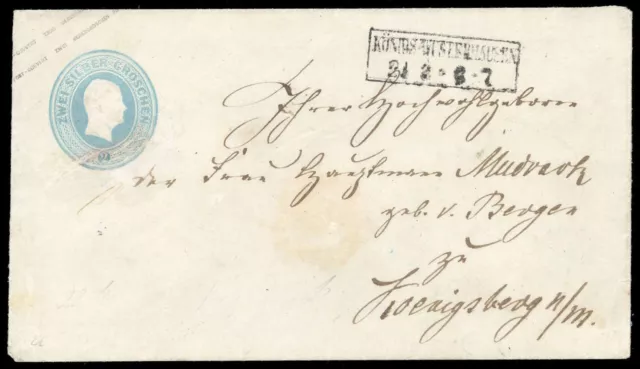 ZWEI SILBER GROSCHEN
KÖNIGS-WUSTERHAUSEN
21 3 * 6-7
Ihrer Hochwohlgeboren
der Frau Hauptmann Mudrack
geb. v. Bergen
zu
Koenigsberg n/m.